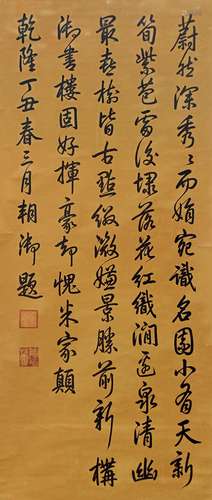 蔚然深秀〻而娟宛識名園小有天新
筍紫苞雷後埭落花紅纈澗邊泉清幽
最喜樹皆古點綴微嫌景勝前新構
御書樓固好揮豪却愧米家顛
乾隆丁丑春三月朔御題